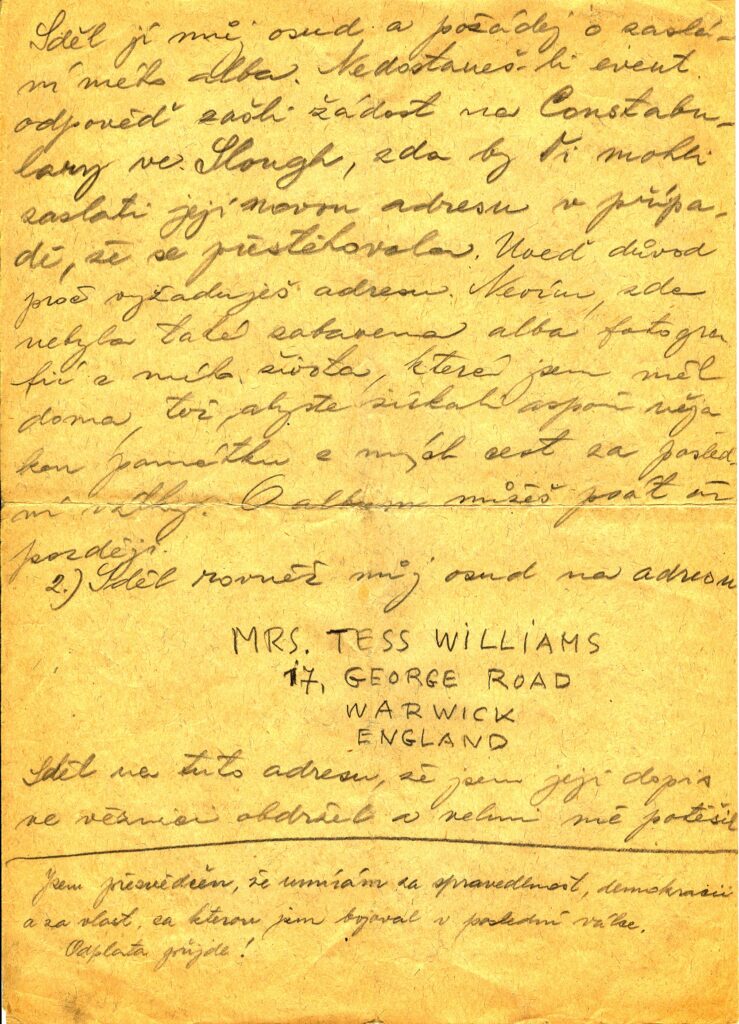 Sděl jí můj osud a požádej o zaslá-
ní mého alba. Nedostaneš-li event.
odpověď zašli žádost na Constabu-
lary ve Slough, zda by Ti mohli
zaslati její novou adresu v přípa-
dě, že se přestěhovala. Uveď důvod
proč vyžaduješ adresu. Nevím, zda
nebyla také zabavena alba fotogra
fií z mého života, které jsem měl
doma, tož, abyste získali aspoň něja
kou památku z mých cest za posled-
ní války. O album můžeš psát až
později.
2.) Sděl rovněž můj osud na adresu
MRS. TESS WILLIAMS
17, GEORGE ROAD
WARWICK
ENGLAND
Sděl na tuto adresu, že jsem její dopis
ve věznici obdržel a velmi mě potěšil
Jsem přesvědčen, že umírám za spravedlnost, demokracii
a za vlast, za kterou jsem bojoval v poslední válce.
Odplata přijde!